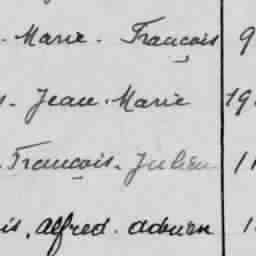 - Marie - François 9
s. Jean. Marie 19
. François. Julien 11
is, Alfred. Adrien 1